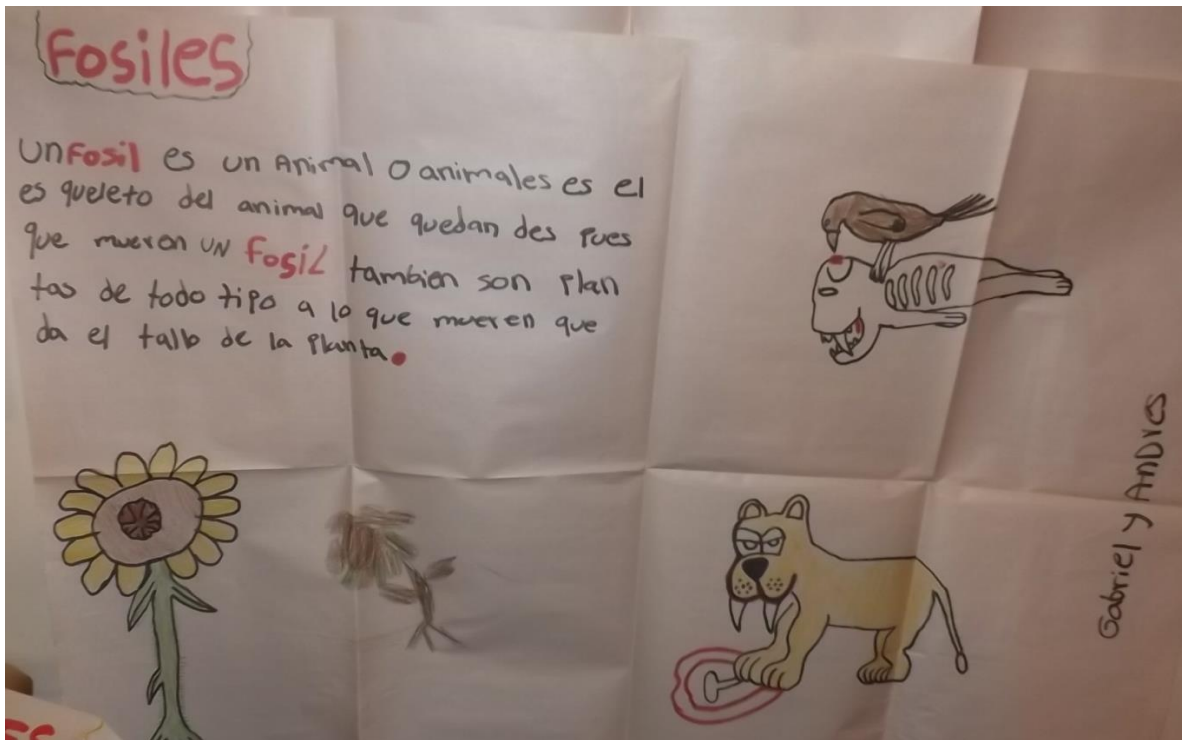 Fosiles
UnFosil es un Animal o animales es el
es queleto del animal que quedan des pues
que mueren UN fosil tambien son plan
tas de todo tipo a lo que mueren que
da el tallo de la planta.
Gabriel y AnDres
ES